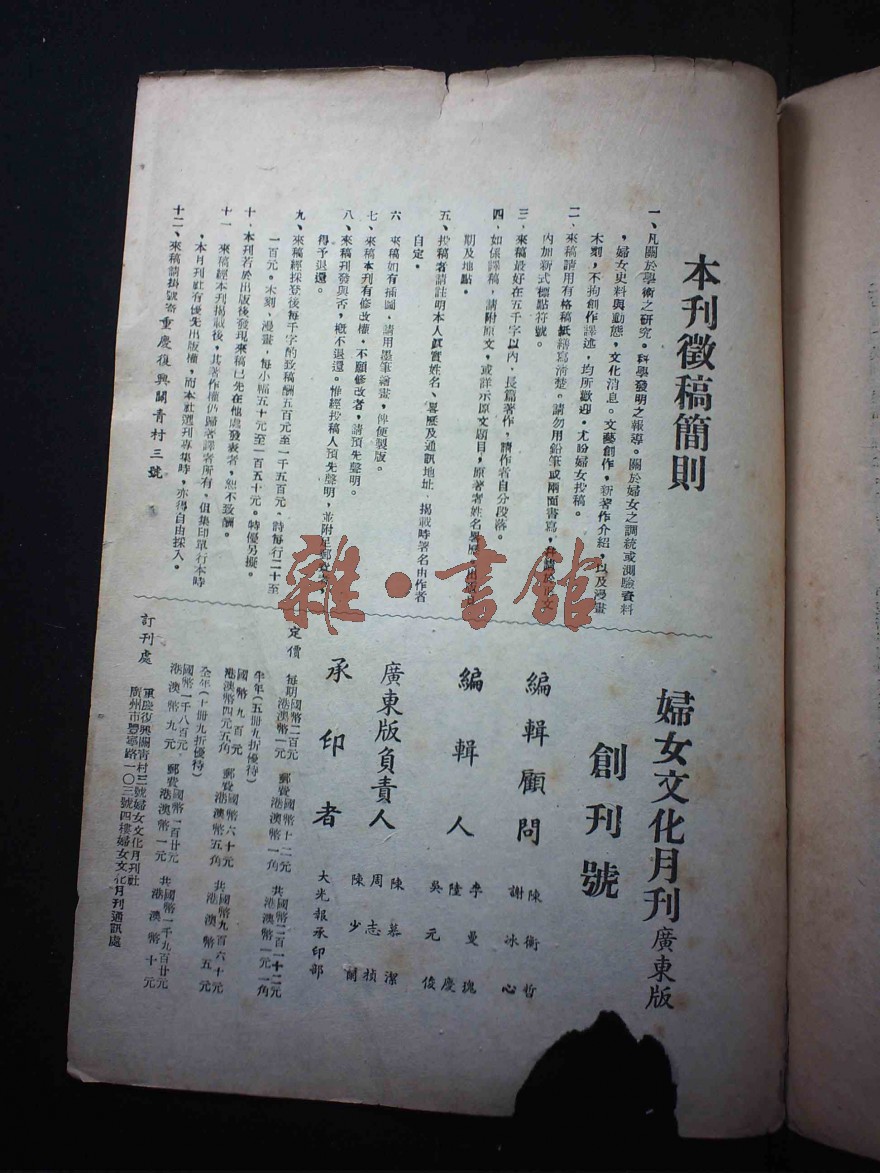 本刊徵稿簡則
一、凡關於學術之研究。科學發明之報導。關於婦女之調統或測驗資料
，婦女史料與動態。文化消息。文藝創作，新著作介紹，以及漫畫
木刻，不拘創作譯述，均所歡迎。尤盼婦女投稿。
二、來稿請用有格稿紙繕寫清楚。請勿用鉛筆或兩面書寫，文
內加新式標點符號。
三、來稿最好在五千字以內，長篇著作，請作者自分段落。
四、如係譯稿，請附原文，或詳示原文題目，原著者姓名
期及地點。
五、投稿者請註明本人真實姓名、畧歷及通訊地址，揭載時署名由作者
自定。
六、來稿如有插圖，請用墨筆繪畫，俾便製版。
七、來稿本刊有修改權，不願修改者，請預先聲明。
八、來稿刊發與否，概不退還。惟經投稿人預先聲明，並附足郵資
得予退還。
九、來稿經採登後每千字酌致稿酬五百元至一千五百元。詩每行二十至
一百元。木刻、漫畫，每小幅五十元至一百五十元。特優另擬。
十、本刊若於出版後發現來稿已先在他處發表者，恕不致酬。
十一、來稿經本刊揭載後，其著作權仍歸著譯者所有，但集印單行本時
，本月刊社有優先出版權，而本社選刊專集時，亦得自由採入。
十二、來稿請掛號寄重慶復興關青村三號
婦女文化月刊廣東版
創刊號
編輯顧問 陳衡哲 謝冰心
編輯人 李曼瑰 陸慶 吳元俊
廣東版負責人 陳慕潔 周志楨 陳少蘭
承印者 大光報承印部
定價 每期國幣二百元 郵費國幣十二元 共國幣二百一十二元
港澳幣一元 港澳幣一角 港澳幣一元一角
半年（五冊九折優待）
國幣九百元 郵費國幣六十元 共國幣九百六十元
港澳幣四元五角 港澳幣五角 港澳幣五元
全年（十冊九折優待）
國幣一千八百元 郵費國幣一百廿元 共國幣一千九百廿元
港澳幣九元 港澳幣一元 港澳幣十元
訂刊處 重慶復興關青村三號婦女文化月刊社
廣州市豐寧路一〇三號四樓婦女文化月刊通訊處
雜·書館